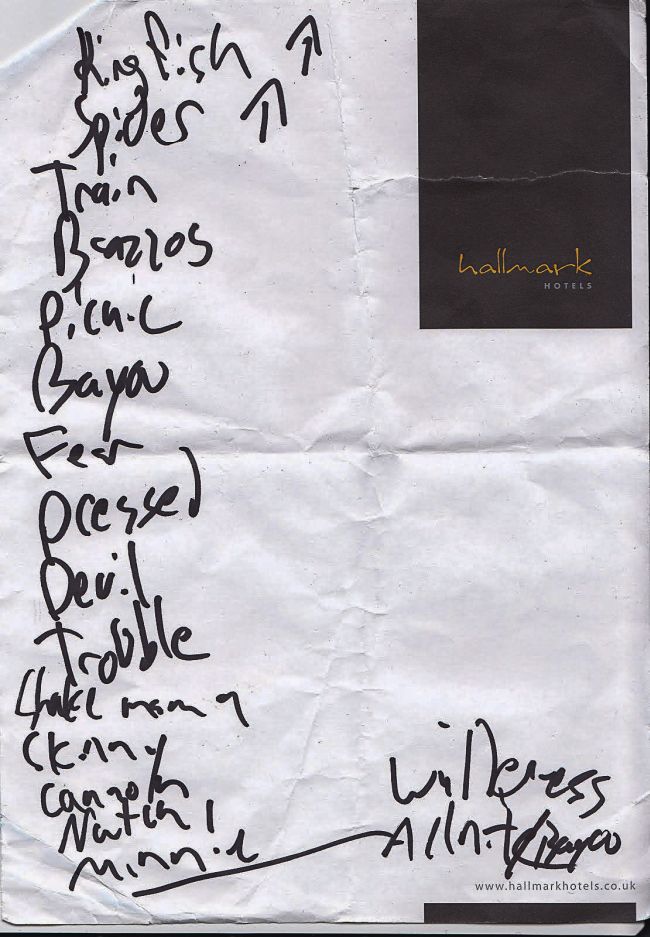 Kingfish ↑
Spider ↑
Train
Brazzos
Picnic
Bayou
Fear
Dressed
Devil
Trouble
Shake mama
Skinny
Natch'l
Minnie
Wilderness
All nite Bayou
hallmark
HOTELS
www.hallmarkhotels.co.uk